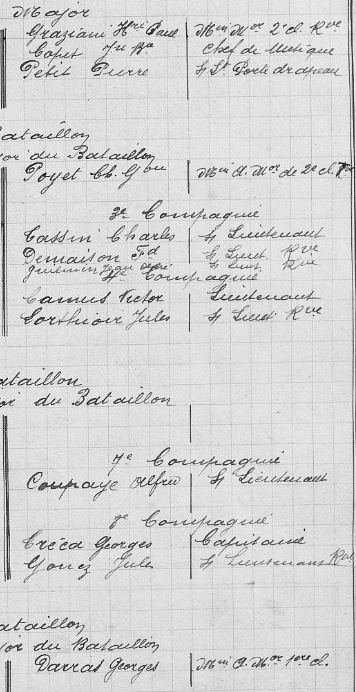 Major
Graziani Hri Paul Min Mor 2e cl. Rve
Copet Jn Bte Chef de Musique
Petit Pierre s/ Lt Porte drapeau
ataillon
or du Bataillon
Poyet Ch. Gon Min A. Mor de 2e cl. Rve
3e Compagnie
Cassin Charles s/ Lieutenant
Demaison Fd s/ Lieut Rve
Guillemin s/ Lieut. Rve
4e Compagnie
Camus Victor Lieutenant
Jules s/ Lieut Rve
ataillon
or du Bataillon
7e Compagnie
Coupaye Alfred s/ Lieutenant
8e Compagnie
Créca Georges Capitaine
Gonez Jules s/ Lieutenant Rve
ataillon
or du Bataillon
Darras Georges Min A. Mor 1ere cl.